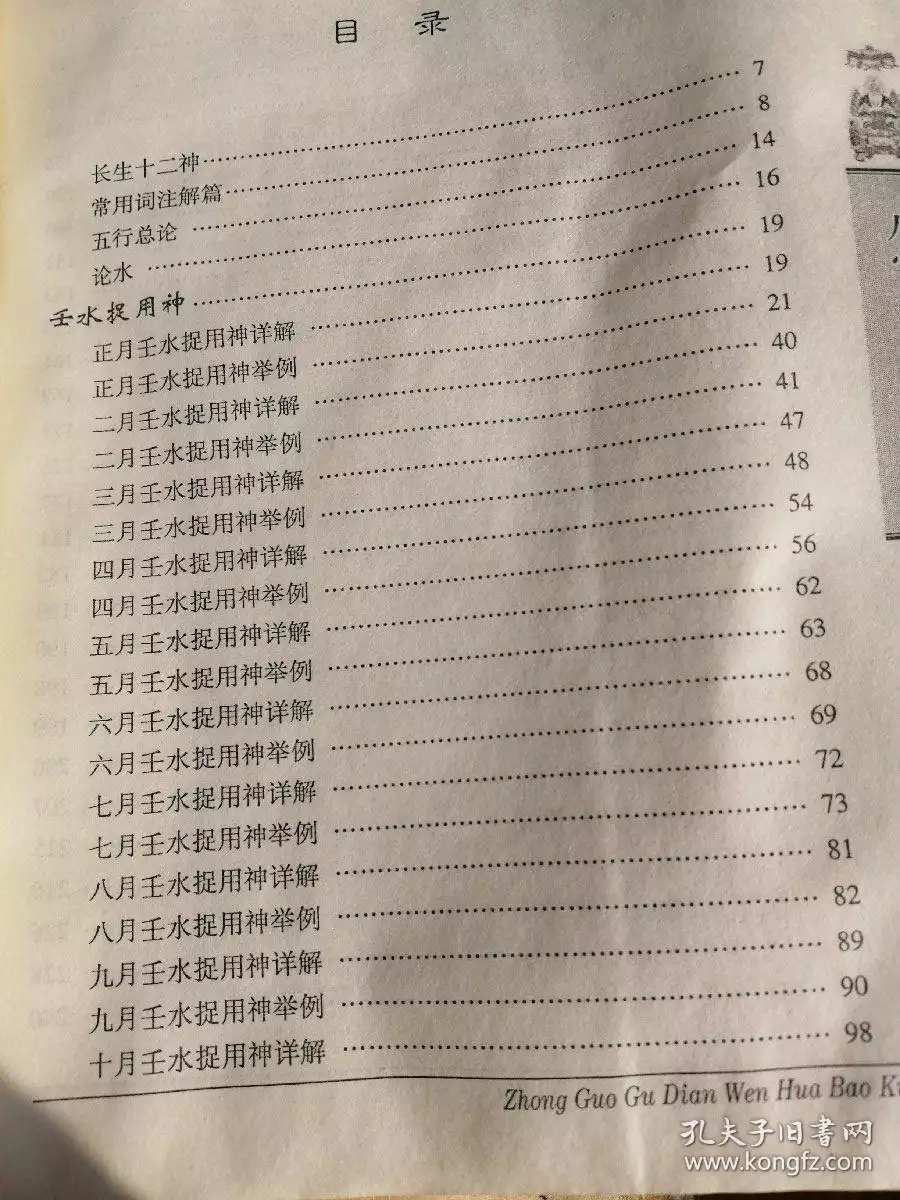 目 录
长生十二神 7
常用词注解篇 8
五行总论 14
论水 16
壬水捉用神 19
正月壬水捉用神详解 19
正月壬水捉用神举例 21
二月壬水捉用神详解 40
二月壬水捉用神举例 41
三月壬水捉用神详解 47
三月壬水捉用神举例 48
四月壬水捉用神详解 54
四月壬水捉用神举例 56
五月壬水捉用神详解 62
五月壬水捉用神举例 63
六月壬水捉用神详解 68
六月壬水捉用神举例 69
七月壬水捉用神详解 72
七月壬水捉用神举例 73
八月壬水捉用神详解 81
八月壬水捉用神举例 82
九月壬水捉用神详解 89
九月壬水捉用神举例 90
十月壬水捉用神详解 98
Zhong Guo Gu Dian Wen Hua Bao
孔夫子旧书网
www.kongfz.com